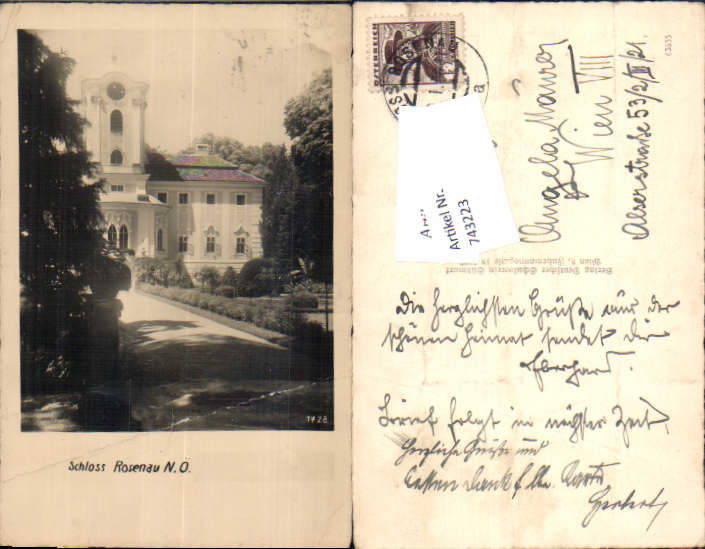 1728
Schloss Rosenau N.Ö.
ÖSTERREICH
Artikel Nr.
743223
63635
Angela Maurer
Wien VIII
Alserstraße 53/2/III/21.
Verlag Deutscher Schulverein Südmark
Wien 8,
Die herzlichsten Grüße aus der
schönen Heimat sendet dir
Eberhard.
Brief folgt in nächster Zeit
Herzliche Grüße und
besten Dank f. die Karte
Herbert